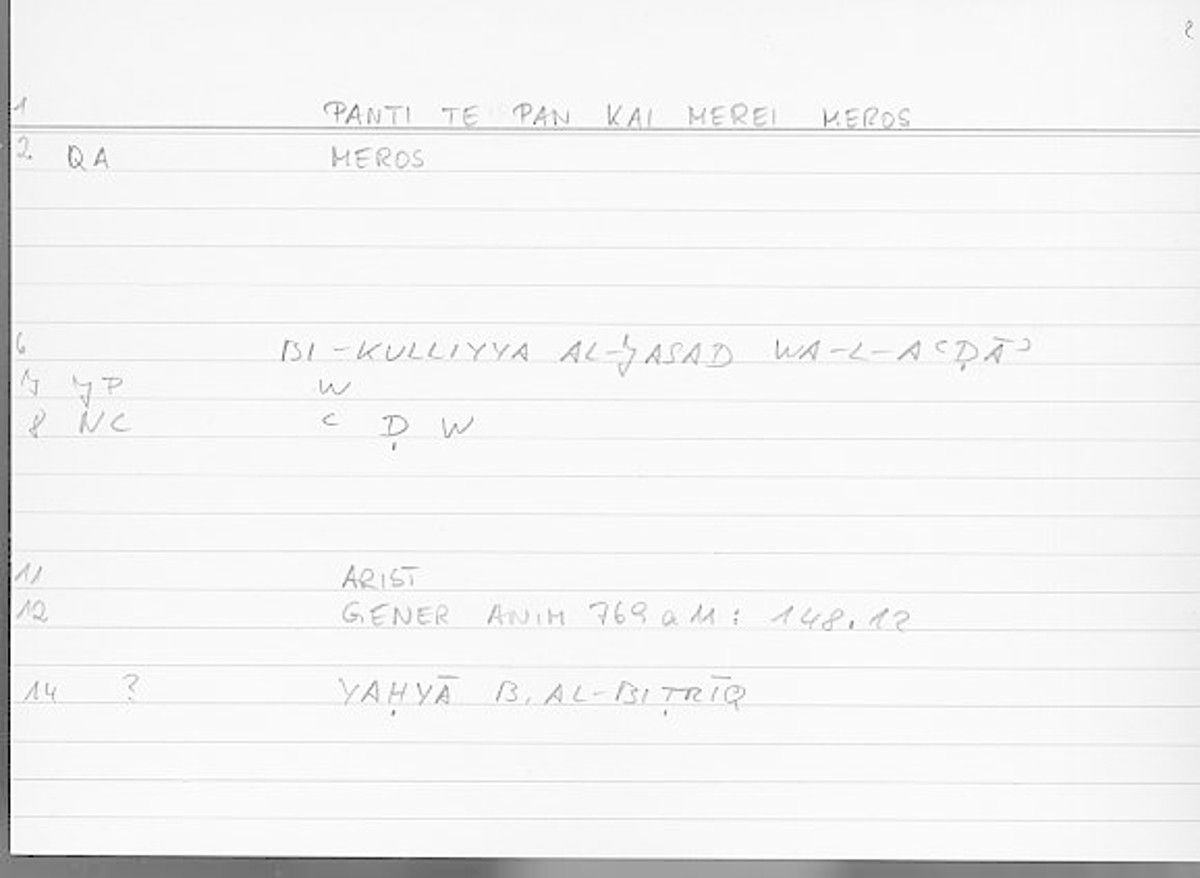 2
1 PANTI TE PAN KAI MEREI MEROS
2 QA MEROS
6 BI-KULLIYYA AL-ǦASAD WA-L-AʿḌĀʾ
7 ǦP W
8 NC ʿ Ḍ W
11 ARIST
12 GENER ANIM 769 a 11 : 148.12
14 ? YAḤYĀ B. AL-BIṬRĪQ